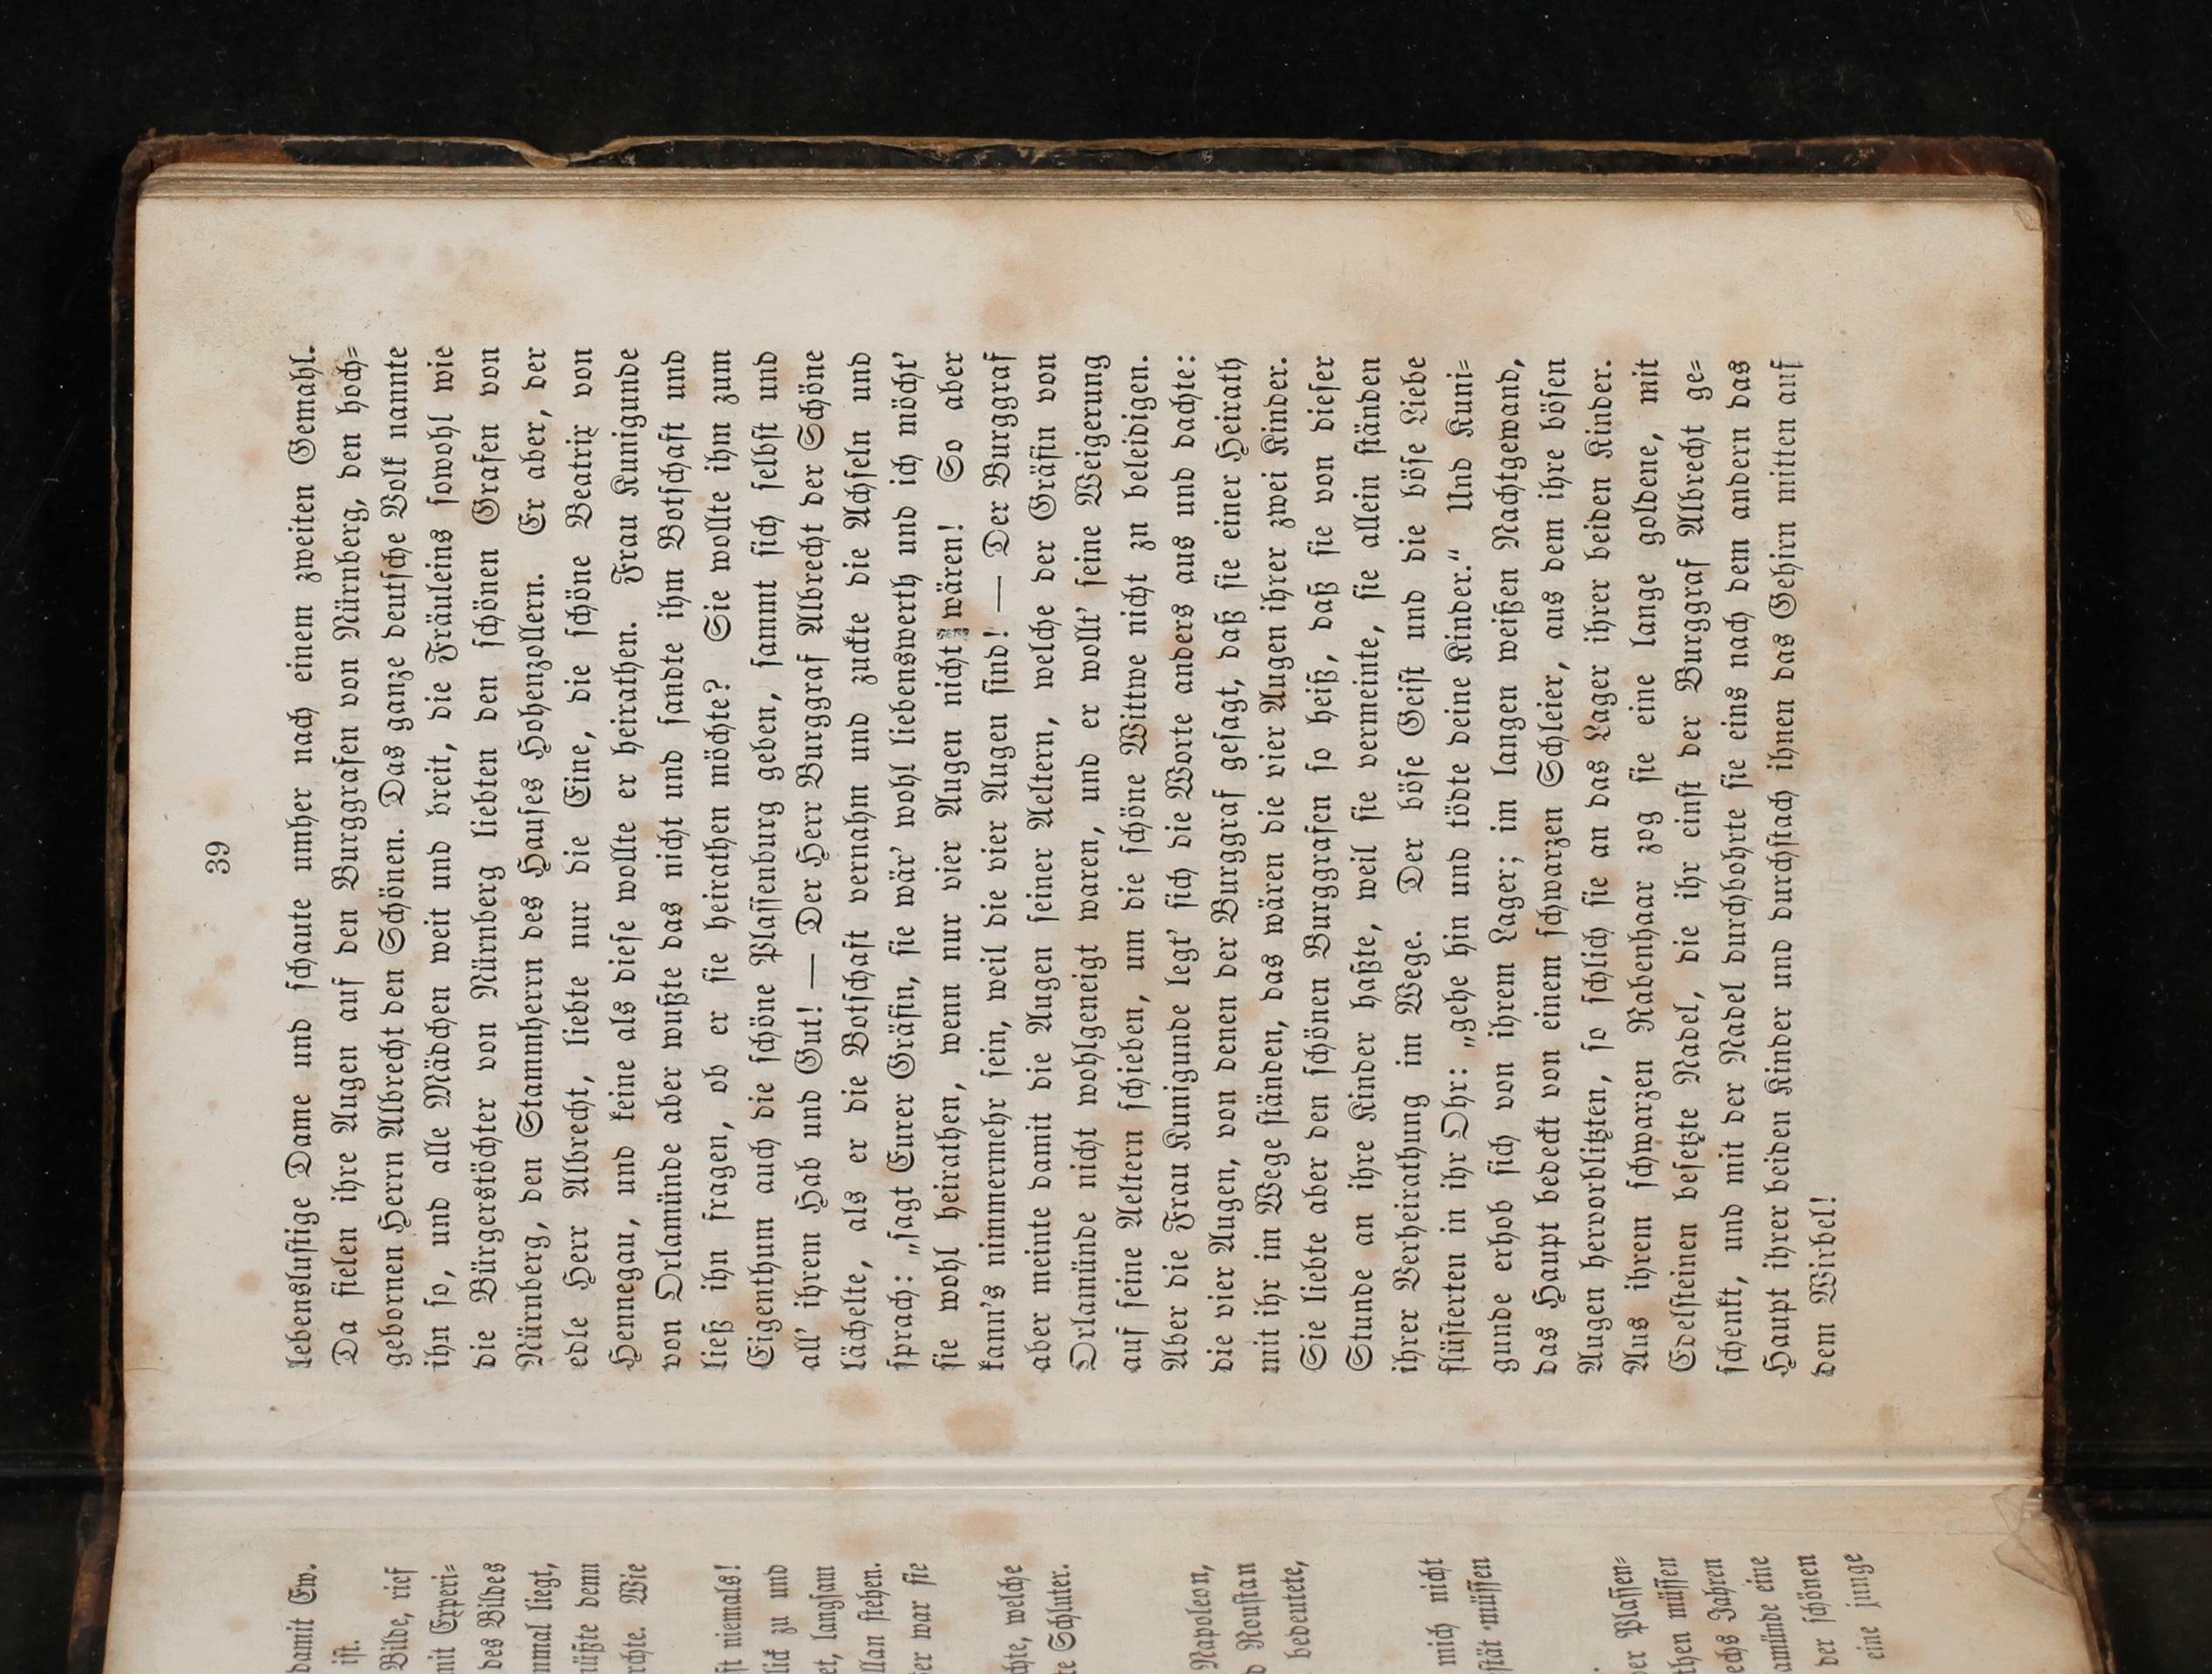 damit Ew.
ist.
Bilde, rief
mit Experi=
des Bildes
nmal liegt,
müßte denn
rchte. Wie
st niemals!
lick zu und
et, langsam
llan stehen.
er war sie
chte, welche
te Schluter.
Napoleon,
d Roustan
bedeutete,
mich nicht
stät müssen
er Plassen=
then müssen
echs Jahren
amünde eine
der schönen
eine junge
39
lebenslustige Dame und schaute umher nach einem zweiten Gemahl.
Da fielen ihre Augen auf den Burggrafen von Nürnberg, den hoch=
gebornen Herrn Albrecht den Schönen. Das ganze deutsche Volk nannte
ihn so, und alle Mädchen weit und breit, die Fräuleins sowohl wie
die Bürgerstöchter von Nürnberg liebten den schönen Grafen von
Nürnberg, den Stammherrn des Hauses Hohenzollern. Er aber, der
edle Herr Albrecht, liebte nur die Eine, die schöne Beatrix von
Hennegau, und keine als diese wollte er heirathen. Frau Kunigunde
von Orlamünde aber wußte das nicht und sandte ihm Botschaft und
ließ ihn fragen, ob er sie heirathen möchte? Sie wollte ihm zum
Eigenthum auch die schöne Plassenburg geben, sammt sich selbst und
all' ihrem Hab und Gut! — Der Herr Burggraf Albrecht der Schöne
lächelte, als er die Botschaft vernahm und zuckte die Achseln und
sprach: „sagt Eurer Gräfin, sie wär' wohl liebenswerth und ich möcht'
sie wohl heirathen, wenn nur vier Augen nicht wären! So aber
kann's nimmermehr sein, weil die vier Augen sind! — Der Burggraf
aber meinte damit die Augen seiner Aeltern, welche der Gräfin von
Orlamünde nicht wohlgeneigt waren, und er wollt' seine Weigerung
auf seine Aeltern schieben, um die schöne Wittwe nicht zu beleidigen.
Aber die Frau Kunigunde legt' sich die Worte anders aus und dachte:
die vier Augen, von denen der Burggraf gesagt, daß sie einer Heirath
mit ihr im Wege ständen, das wären die vier Augen ihrer zwei Kinder.
Sie liebte aber den schönen Burggrafen so heiß, daß sie von dieser
Stunde an ihre Kinder haßte, weil sie vermeinte, sie allein ständen
ihrer Verheirathung im Wege. Der böse Geist und die böse Liebe
flüsterten in ihr Ohr: „gehe hin und tödte deine Kinder.“ Und Kuni=
gunde erhob sich von ihrem Lager; im langen weißen Nachtgewand,
das Haupt bedeckt von einem schwarzen Schleier, aus dem ihre bösen
Augen hervorblitzten, so schlich sie an das Lager ihrer beiden Kinder.
Aus ihrem schwarzen Rabenhaar zog sie eine lange goldene, mit
Edelsteinen besetzte Nadel, die ihr einst der Burggraf Albrecht ge=
schenkt, und mit der Nadel durchbohrte sie eins nach dem andern das
Haupt ihrer beiden Kinder und durchstach ihnen das Gehirn mitten auf
dem Wirbel!